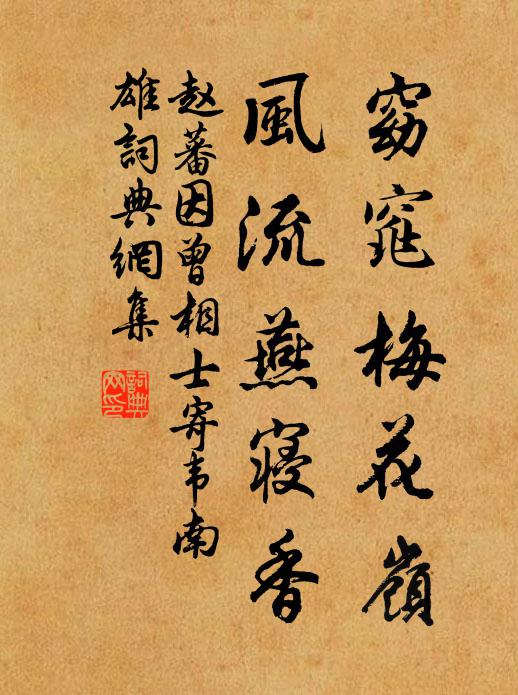 窈窕梅花嶺
風流燕寝香
赵蕃因曾相士寄韦南
雄詞典網集
詞典
网印